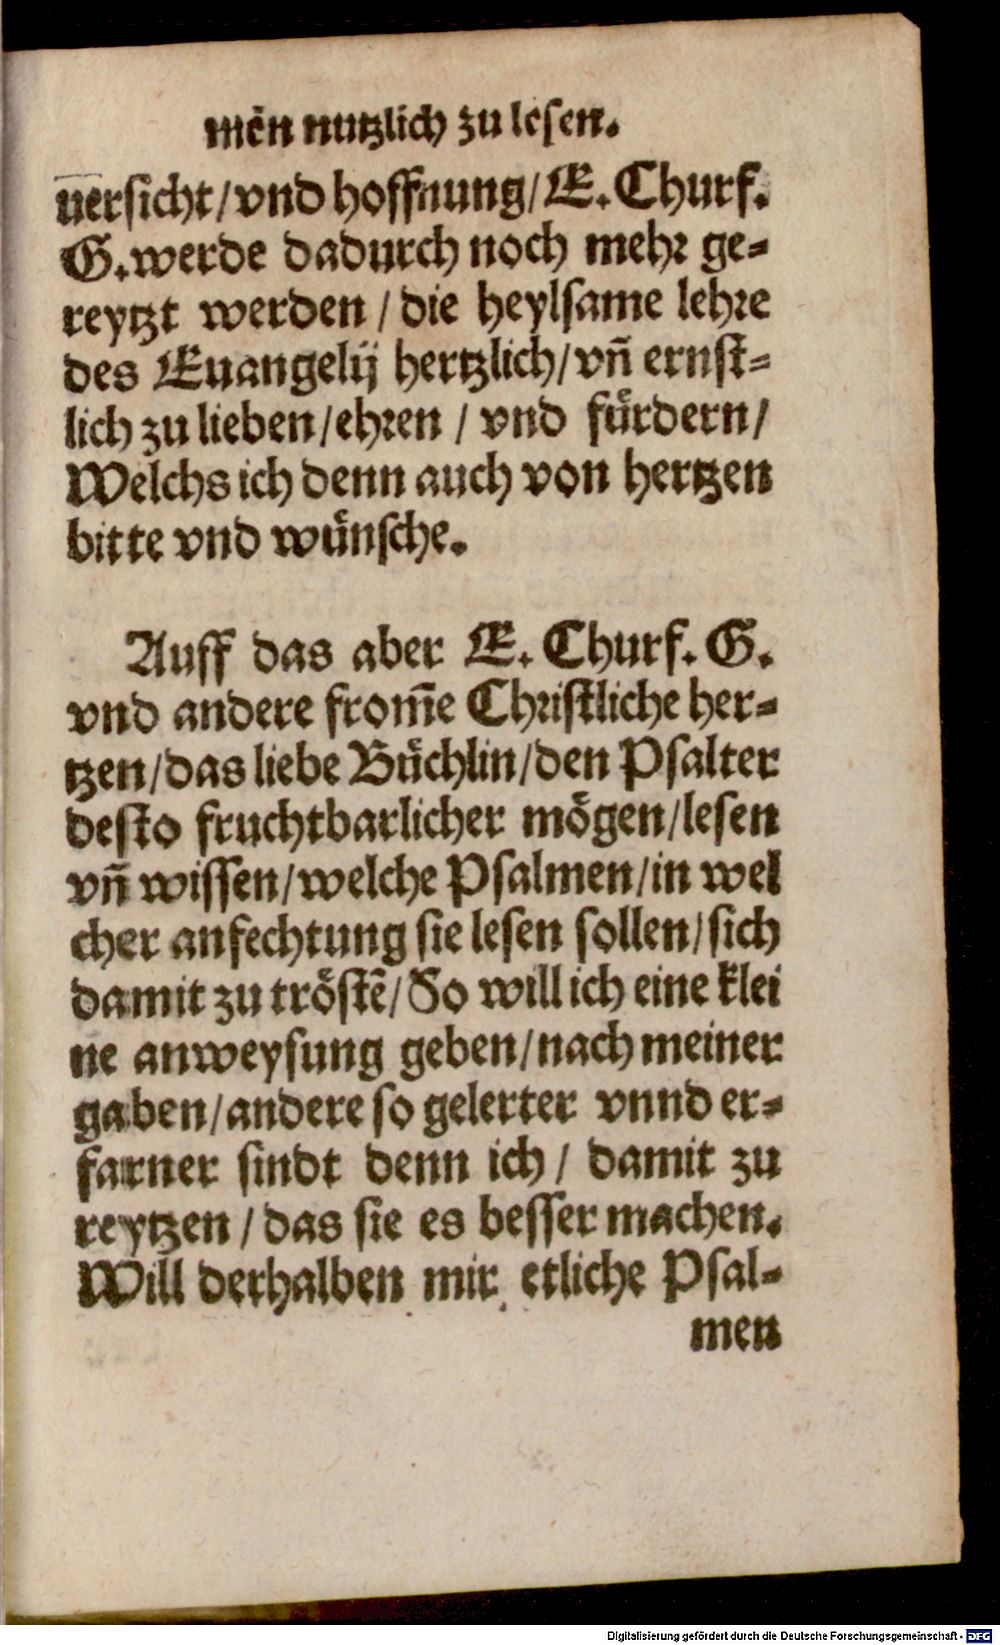 men nutzlich zu lesen.
uersicht/vnd hoffnung/E. Churf.
G. werde dadurch noch mehr ge-
reytzt werden / die heylsame lehre
des Euangelij hertzlich/vn̄ ernst-
lich zu lieben/ehren / vnd fuͤrdern/
Welchs ich denn auch von hertzen
bitte vnd wuͤnsche.
Auff das aber E. Churf. G.
vnd andere from̄e Christliche her-
tzen/das liebe Buͤchlin/den Psalter
desto fruchtbarlicher moͤgen/lesen
vn̄ wissen/welche Psalmen/in wel
cher anfechtung sie lesen sollen/sich
damit zu troͤstē/So will ich eine klei
ne anweysung geben/nach meiner
gaben/andere so gelerter vnnd er-
farner sindt denn ich / damit zu
reytzen / das sie es besser machen.
Will derhalben mir etliche Psal-
men
Digitalisierung gefördert durch die Deutsche Forschungsgemeinschaft - DFG